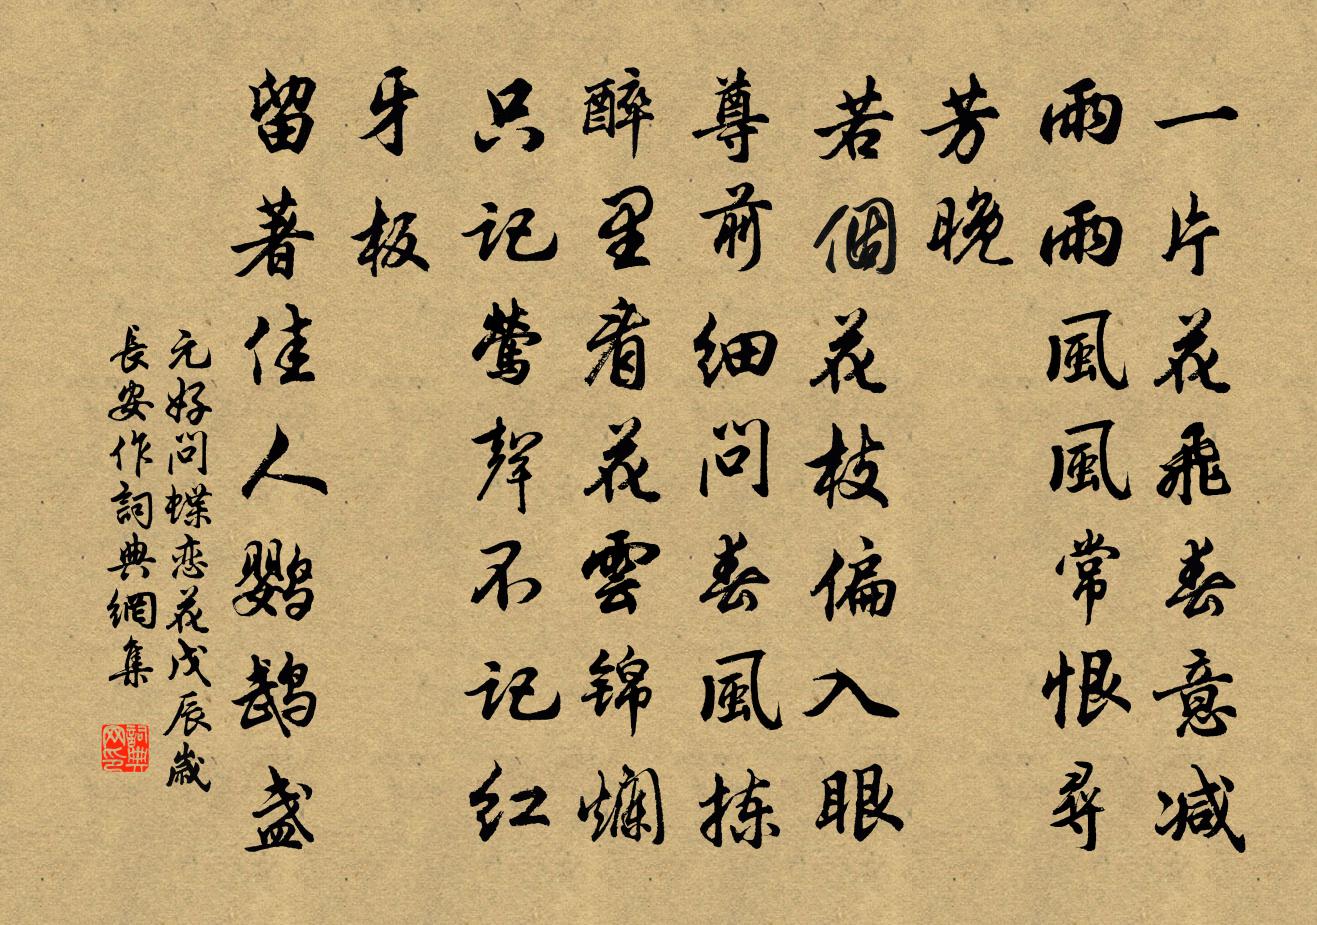 一片花飛春意减
雨雨風風常恨尋
芳晚
若個花枝偏入眼
尊前細問春風拣
醉里看花雲錦爛
只記鶯聲不記红
牙板
留著佳人鹦鹉盏
元好問蝶恋花戊辰歲
長安作詞典網集
詞典网印